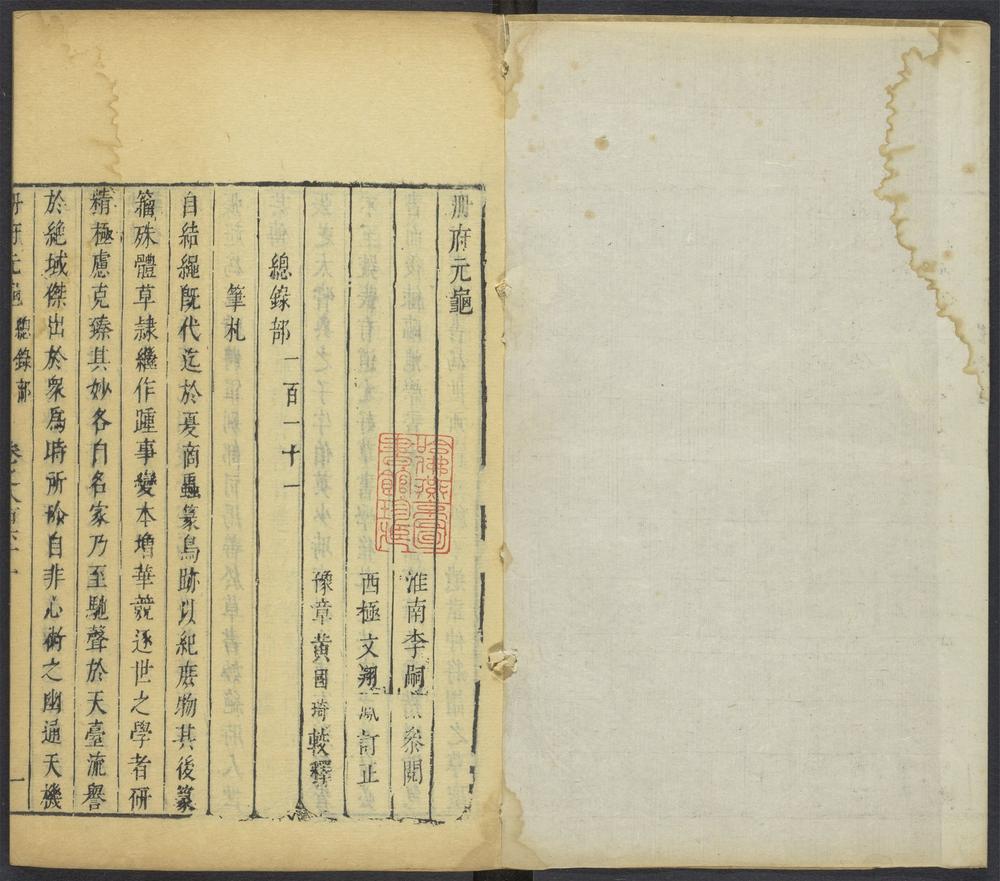 冊府元龜
淮南李嗣京叅閱
西極文翔鳳訂正
豫章黃國琦較釋
總錄部一百一十一
筆札
自結繩旣代迄於夏商蟲篆鳥跡以紀庶物其後篆
籀殊體草隷繼作踵事變本增華競逐世之學者研
精極慮克臻其妙各自名家乃至馳聲於天臺流譽
於絕域傑出於衆爲時所珍自非心術之幽通天機
冊府元龜 總錄部 卷之八百六十一 一
哈佛燕京圖
書館珍藏